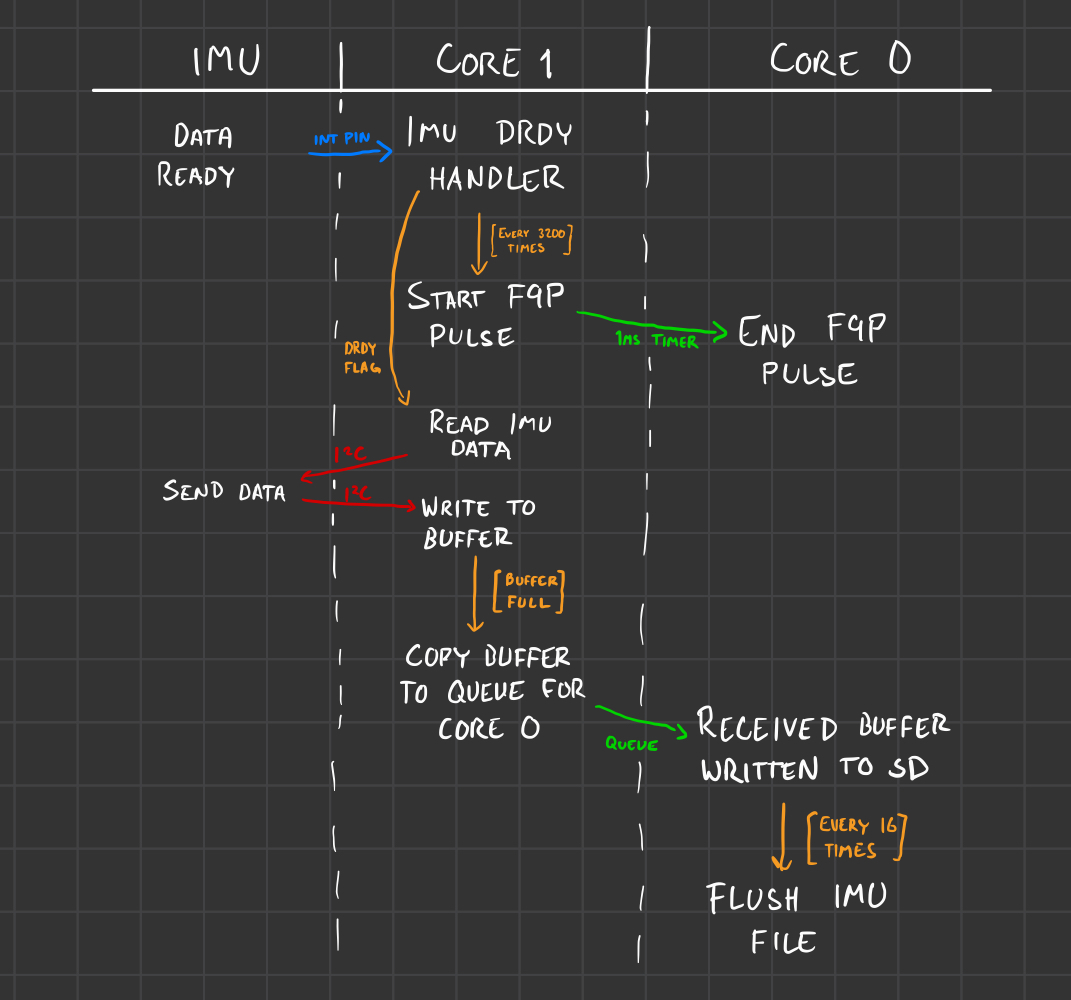 IMU
CORE 1
CORE 0
DATA
READY
INT PIN
IMU DRDY
HANDLER
[EVERY 3200
TIMES]
START F9P
PULSE
1MS TIMER
END F9P
PULSE
DRDY
FLAG
READ IMU
DATA
I²C
SEND DATA
I²C
WRITE TO
BUFFER
[BUFFER
FULL]
COPY BUFFER
TO QUEUE FOR
CORE 0
QUEUE
RECEIVED BUFFER
WRITTEN TO SD
[EVERY 16
TIMES]
FLUSH IMU
FILE